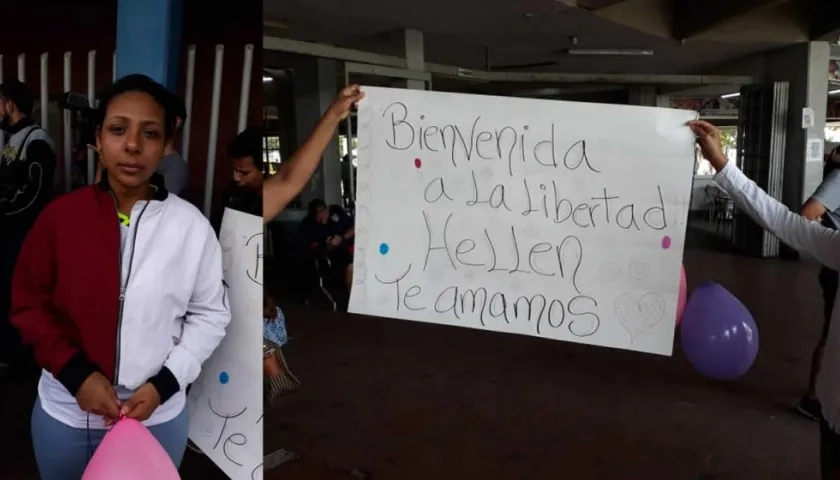 Bienvenida
a La Libertad
HeLLen
Te amamos
B
Te